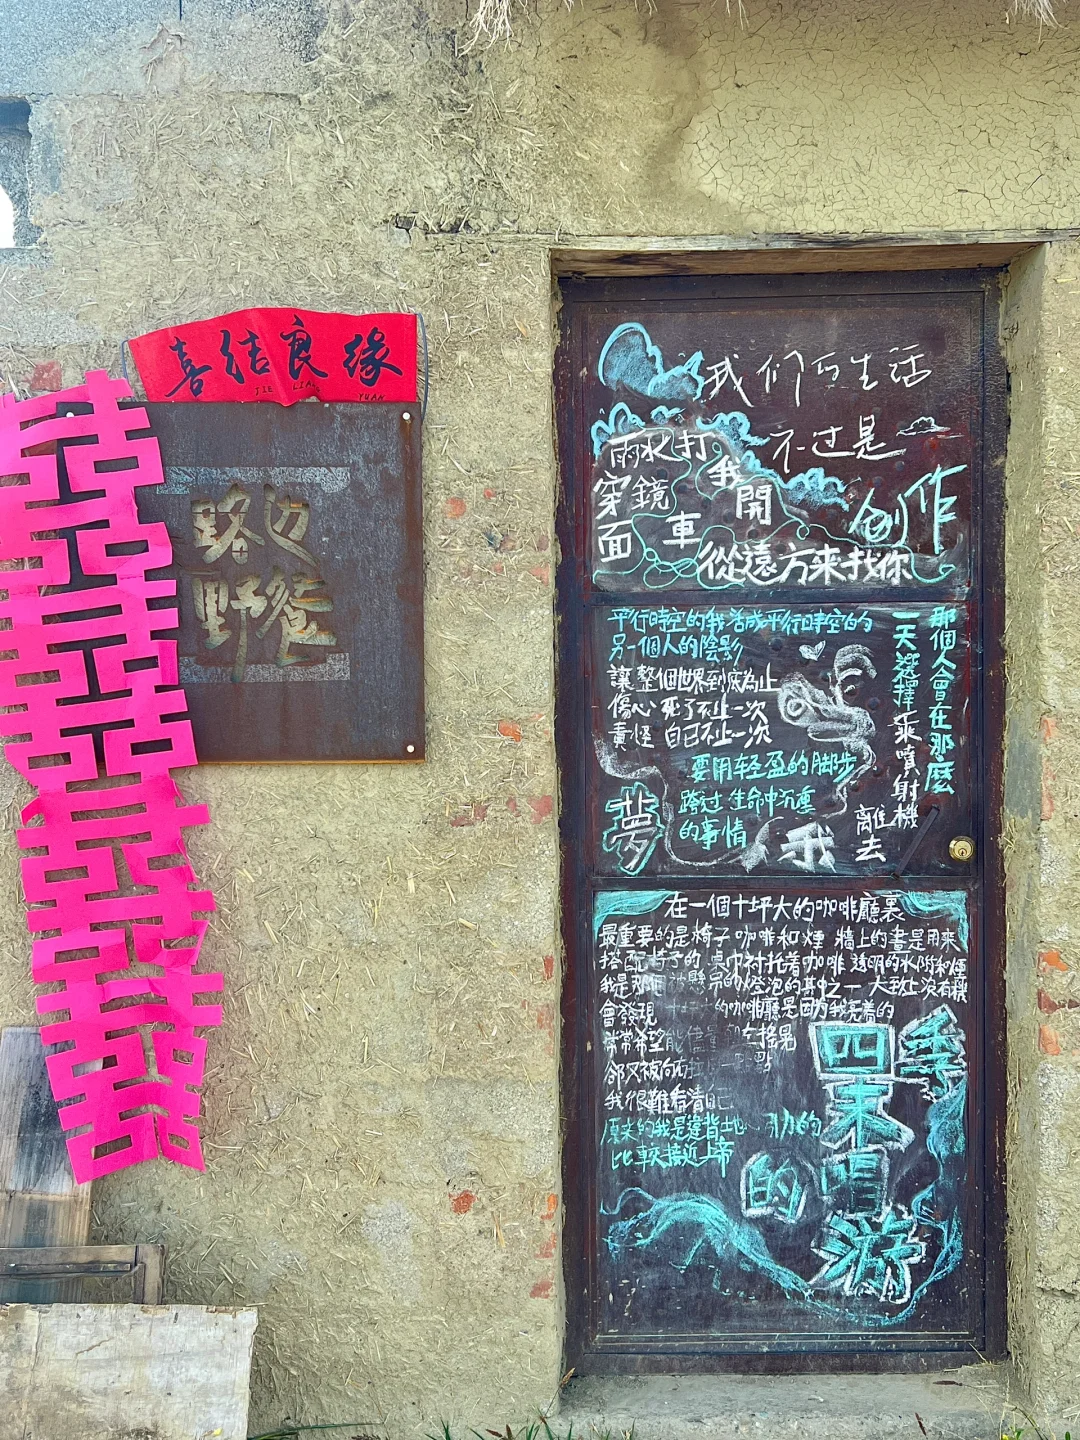 喜结良缘
JIE LIANG YUAN
路边
野餐
我们的生活
不过是
创作
雨水打
穿鏡
面
我開
車
從遠方来找你
平行時空的我活成平行時空的
另一個人的陰影
讓整個世界到底為止
傷心死了不止一次
責怪自己不止一次
要用轻盈的脚步
跨过生命中沉重
的事情
夢
我
那個人會在那麽
一天選擇乘噴射機
離去
在一個十坪大的咖啡廳裏
最重要的是椅子咖啡和煙 牆上的畫是用来
搭配椅子的 桌巾衬托着咖啡 透明的水附和煙
我是那個被懸吊的灯泡的其中之一 大班上没有機
會發現
的咖啡廳是因为我亮着的
常常希望能
搖晃
卻又被向
我很難看清自己
原来的我是違背地心引力的
比較接近上帝
四季
未
唱
游
的